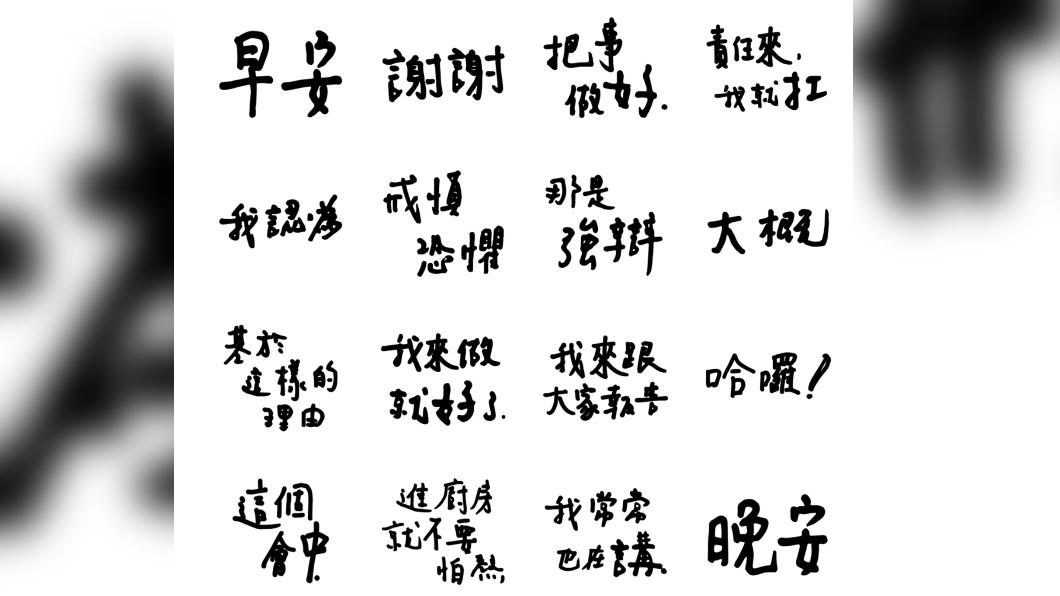 早安
謝謝
把事
做好.
責任來,
我就扛
我認為
戒慎
恐懼
那是
強辯
大概
基於
這樣的
理由
我來做
就好了.
我來跟
大家報告
哈囉!
這個
會中.
進廚房
就不要
怕熱,
我常常
也在講.
晚安